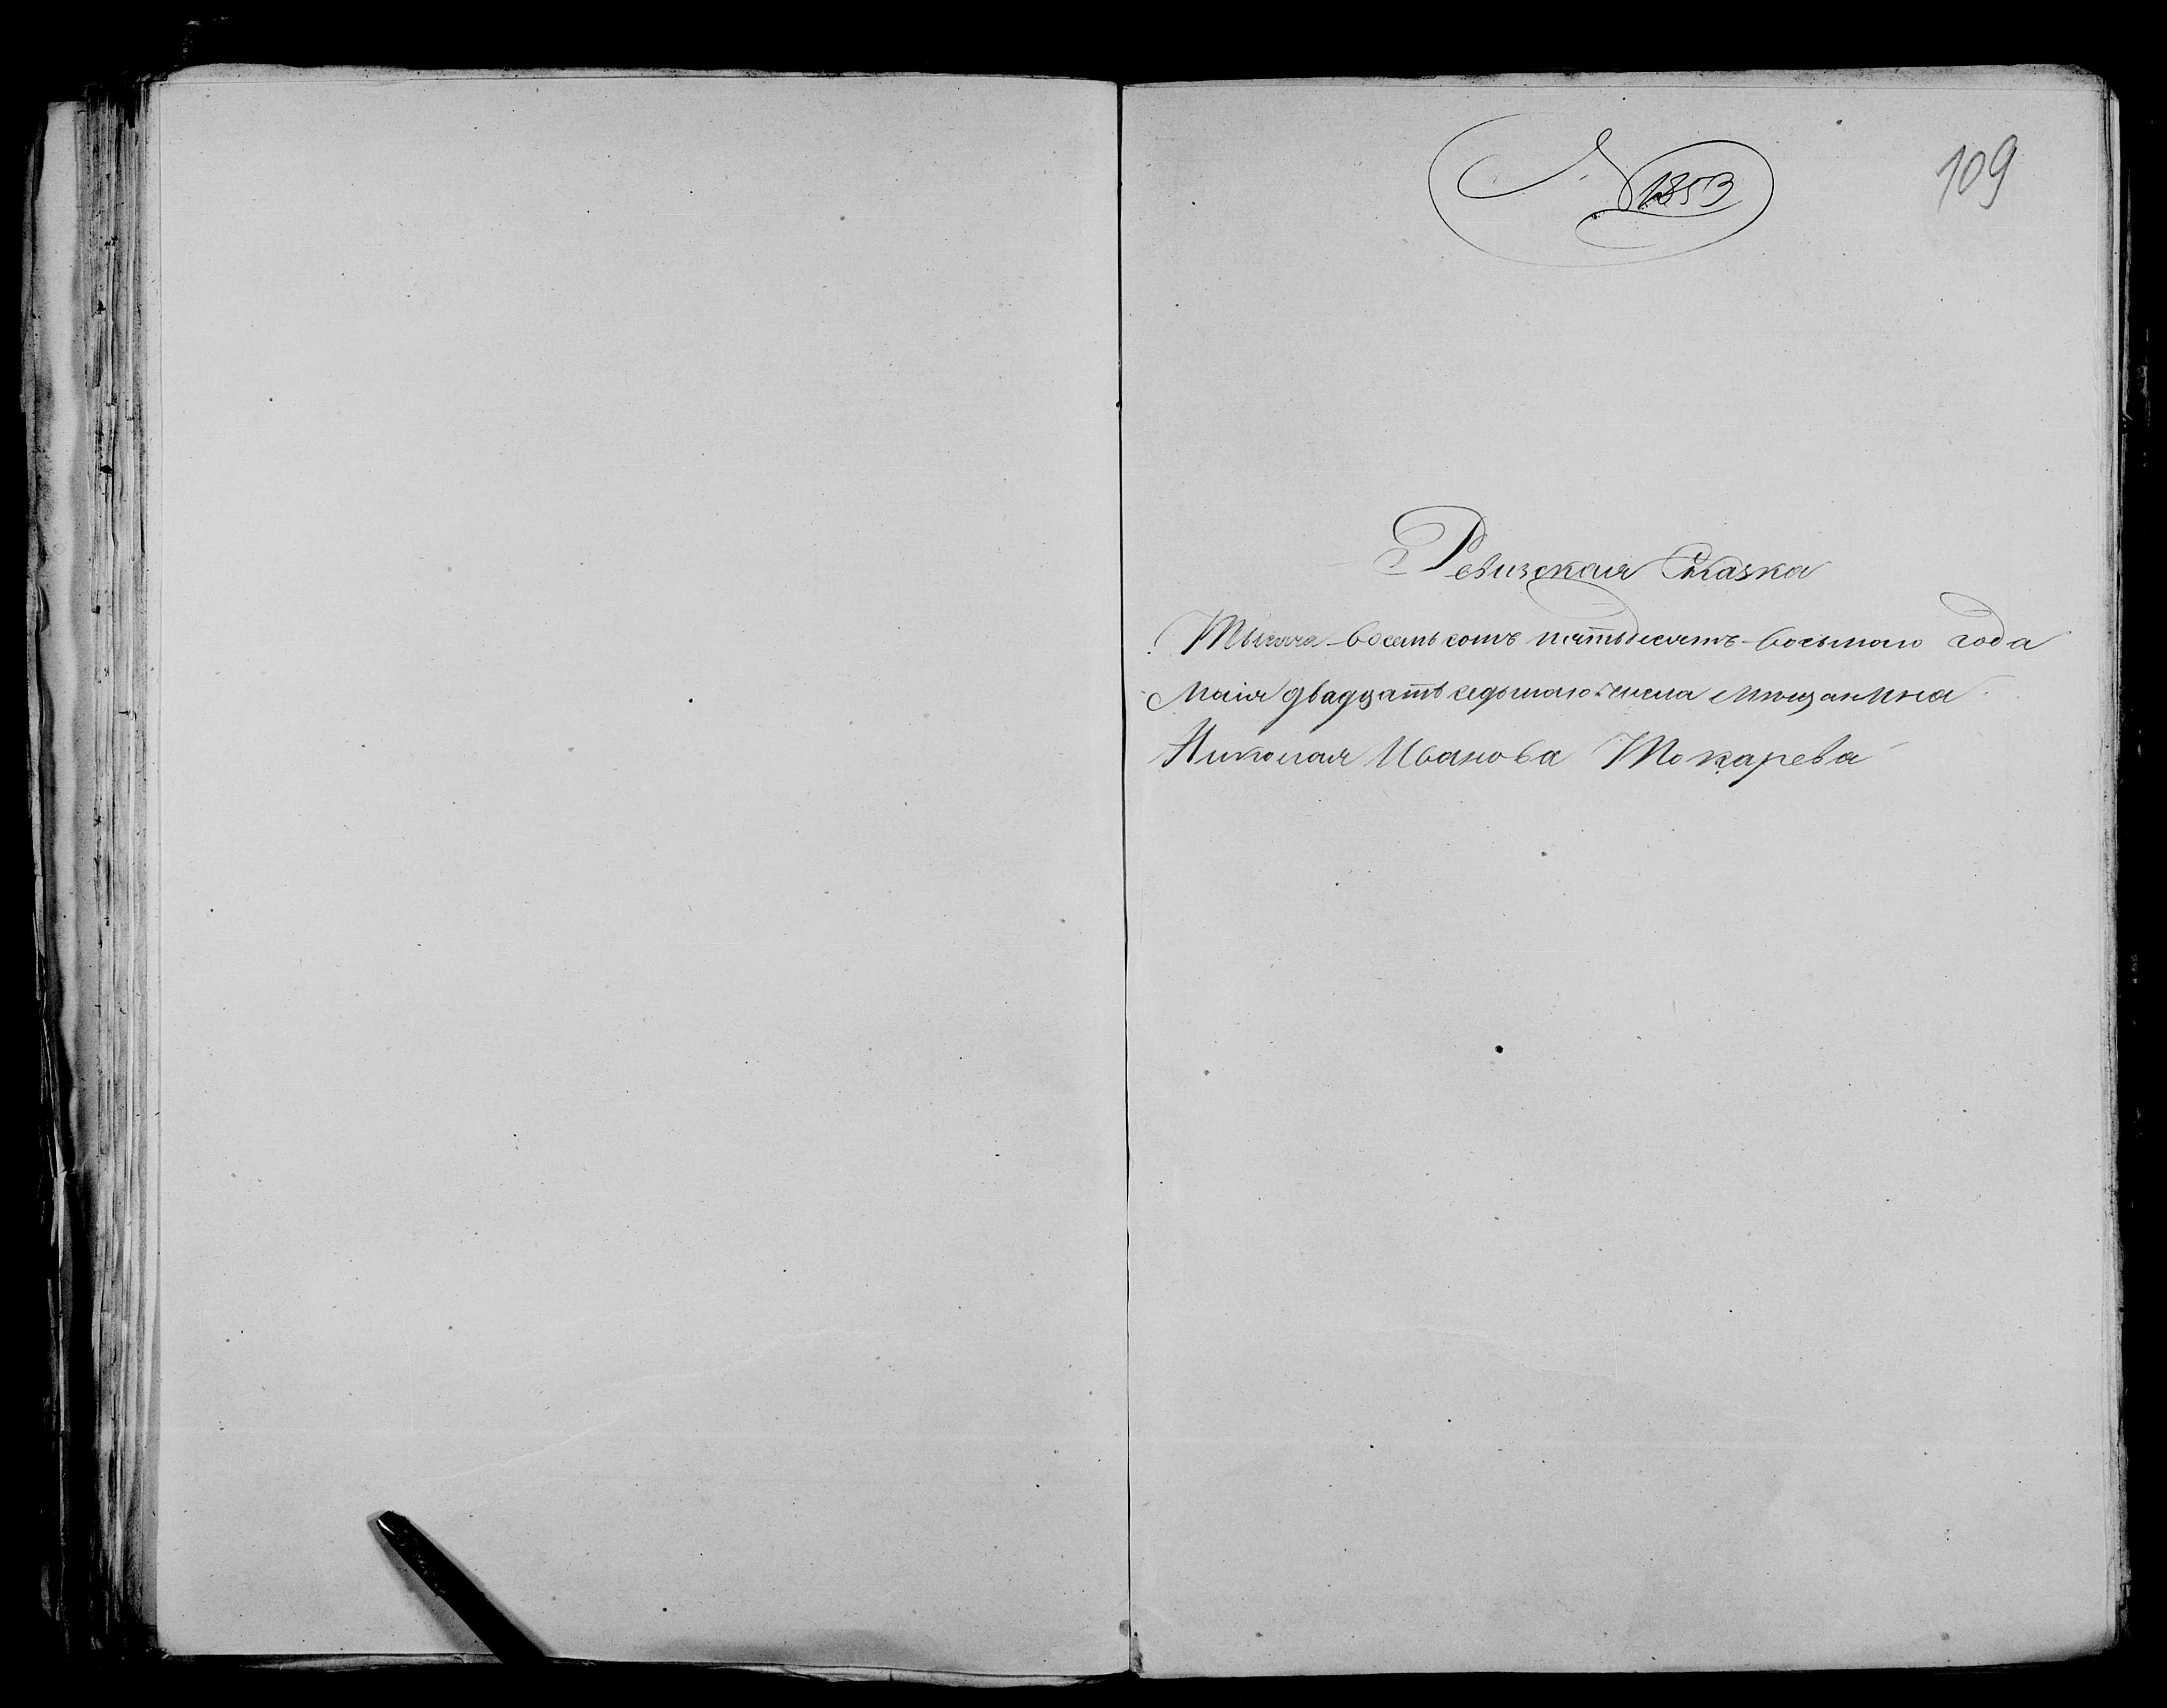 № 1853
109
Ревизская Сказка
Тысяча восемь сотъ пятьдесятъ восьмаго года
Маія двадцать седьмаго числа мѣщанина
Николая Иванова Токарева